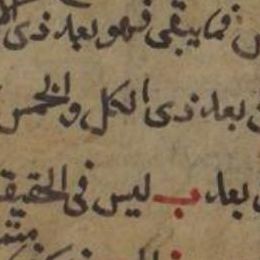 فما يبقى فهو بعد ذى
بعد ذى الكل والخمس
بعد ب ليس فى الحقيقة